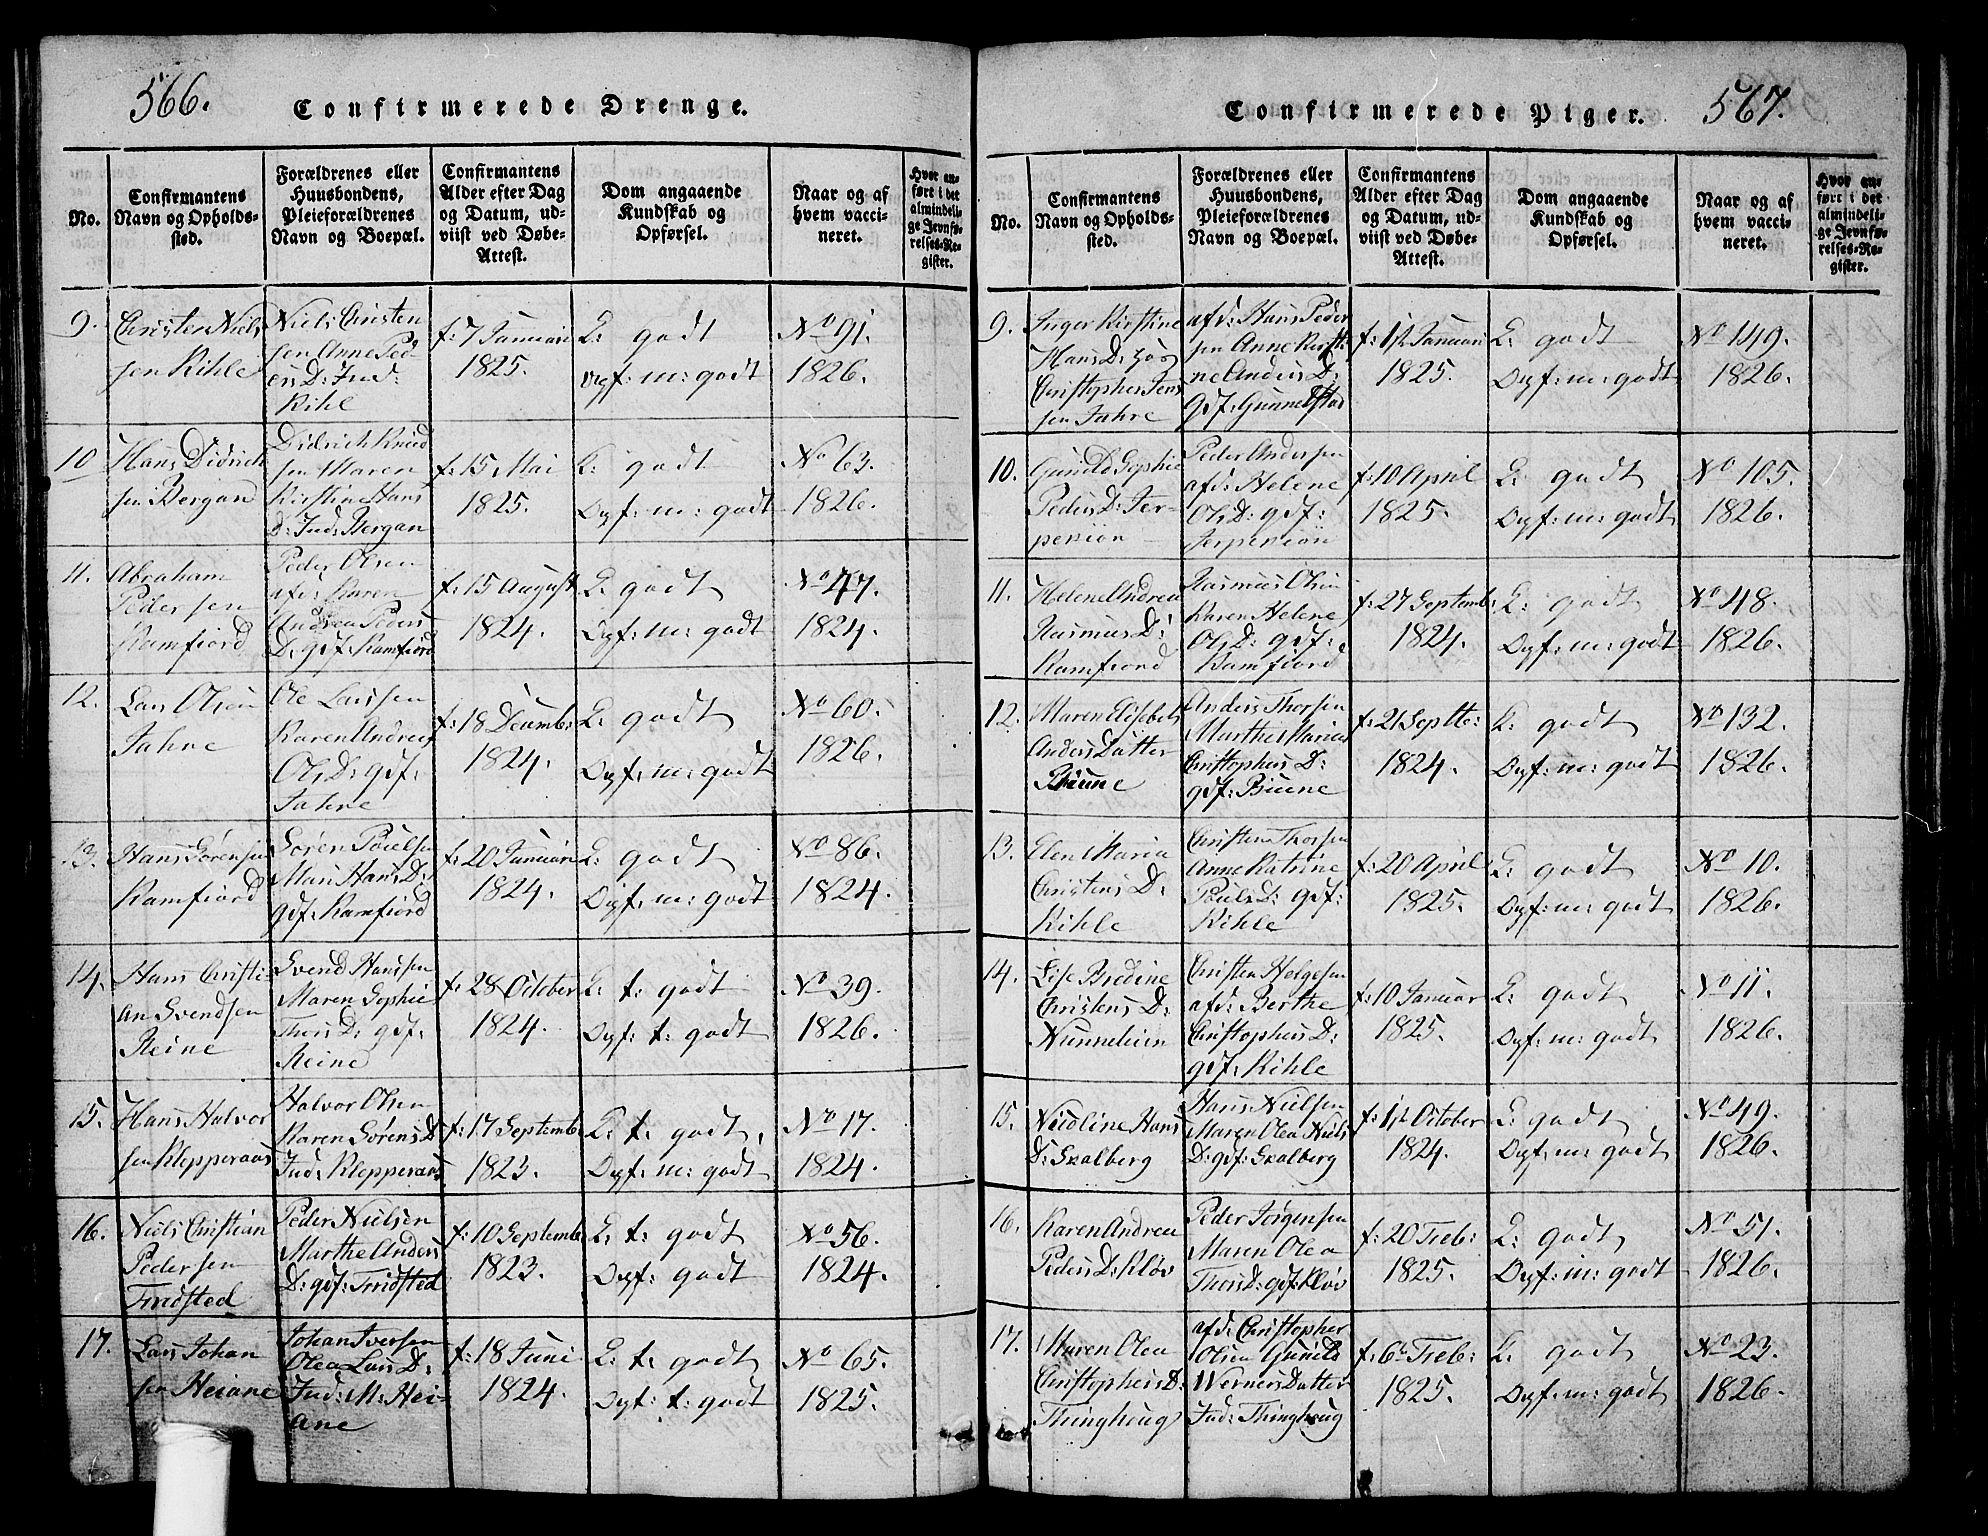 566.
Confirmerede Drenge.
No.
Confirmantens
Navn og Opholds-
sted.
Forældrenes eller
Huusbondens,
Pleieforældrenes
Navn og Boepæl.
Confirmantens
Alder efter Dag
og Datum, ud-
viist ved Døbe-
Attest.
Dom angaaende
Kundskab og
Opførsel.
Naar og af
hvem vacci-
neret.
Hvor an-
ført i det
almindeli-
ge Jevnfø-
relses-Re-
gister.
9.
Christen Niels
sen Kihle
Niels Christen
sen Anne Ped
ers D: Ind:
Kihl
f: 7 Januari
1825.
K: godt
Opf: m: godt
No 91.
1826.
10
Hans Didrich
sen Bergan
Didrich Knud
sen Maren
Kirstine Hans
D: Ind: Bergan
f: 15 Mai
1825.
K: godt
Opf: m: godt
No 63.
1826.
11.
Abraham
Pedersen
Ramfiord
Peder Olsen
Karen
Andrea Peders
D: gdf: Ramfiord
f: 15 August
1824.
K: godt
Opf: m: godt
No 47.
1824.
12.
Lars Olsen
Jahre
Ole Larssen
Karen Andrea
Ols D: gdf:
Jahre
f: 18 Decembr:
1824.
K: godt
Opf: m: godt
No 60.
1826.
13.
Hans Sørensen
Ramfiord
Søren Poulsen
Mari Hans D:
gdf: Ramfiord
f: 20 Januari
1824.
K: godt
Opf: m: godt
No 86.
1824.
14.
Hans Christi-
an Svendsen
Reine
Svend Hanssen
Maren Sophie
Thors D: gdf:
Reine
f: 28 October
1824.
K: t: godt
Opf: t: godt
No 39.
1826.
15.
Hans Halvor
sen Klepperaas
Halvor Olsen
Karen Sørens D
Ind: Klepperaas
f: 17 Septembr
1823.
K: t: godt.
Opf: m: godt
No 17.
1824.
16.
Niels Christian
Pedersen
Fridsted
Peder Nielsen
Marthe Anders
D: gdf: Fridsted
f: 10 Septembr
1823.
K: t: godt
Opf: godt
No 56.
1824.
17.
Lars Johan
sen Heiane
Johan Iversen
Olea Lars D:
Ind: M: Hei-
ane
f: 18 Juni
1824.
K: t: godt
Opf: t: godt
No 65.
1825.
Confirmerede Piger.
567.
No.
Confirmantens
Navn og Opholds-
sted.
Forældrenes eller
Huusbondens,
Pleieforældrenes
Navn og Boepæl.
Confirmantens
Alder efter Dag
og Datum, ud-
viist ved Døbe-
Attest.
Dom angaaende
Kundskab og
Opførsel.
Naar og af
hvem vacci-
neret.
Hvor an-
ført i det
almindeli-
ge Jevnfø-
relses-Re-
gister.
9.
Inger Kirstine
Hans D: hos
Christopher Jens
sen Jahre
afd: Hans Peder
sen Anne Kirsti
ne Anders D:
Gdf: Gunnelstad
Januari
1825.
K: godt
Opf: m: godt
No 149.
1826.
10.
Gunild Sophie
Peders D: Jer-
Peder Andersen
afd: Helene
Ols D: gdf:
f: 10 April
1825.
K: godt
Opf: m: godt
No 105.
1826.
11.
Helene Andrea
Rasmus D:
Ramfiord
Rasmus Olsen
Karen Helene
Ols D: gdf:
Ramfiord
f: 27 Septembr:
1824.
K: godt
Opf: m: godt
No 48.
1826.
12.
Maren Elisebet
Anders Datter
Biune
Anders Thorsen
Marthe Maria
Christophers D:
gdf: Biune
f: 21 Septbr:
1824.
K: godt
Opf: m: godt
No 132.
1826.
13.
Elen Maria
Christens D:
Kihle
Christen Thorsen
Anne Katrine
Pouls D: gdf:
Kihle
f: 20 April
1825.
K: godt
Opf: m: godt
No 10.
1826.
14.
Lise Bredine
Christens D:
Christen Helgesen
afd: Berthe
Christophers D:
gdf: Kihle
f: 10 Januar
1825.
K: godt
Opf: m: godt
No 11.
1826.
15.
Nicoline Hans
D: Skalberg
Hans Nielsen
Maren Olea Niels
D: gdf: Skalberg
October
1824.
K: godt
Opf: m: godt
No 49.
1826.
16.
Karen Andrea
Peders D: Kløv
Peder Jørgensen
Maren Olea
Thors D: gdf: Kløv
f: 20 Febr:
1825.
K: godt
Opf: m: godt
No 51.
1826.
17.
Maren Olea
Christophers D:
Thinghoug
afd: Christopher
Olsen Gunild
Werners Datter
Ind: Thinghoug
f: 6 Febr:
1825.
K: godt
Opf: m: godt
No 23.
1826.